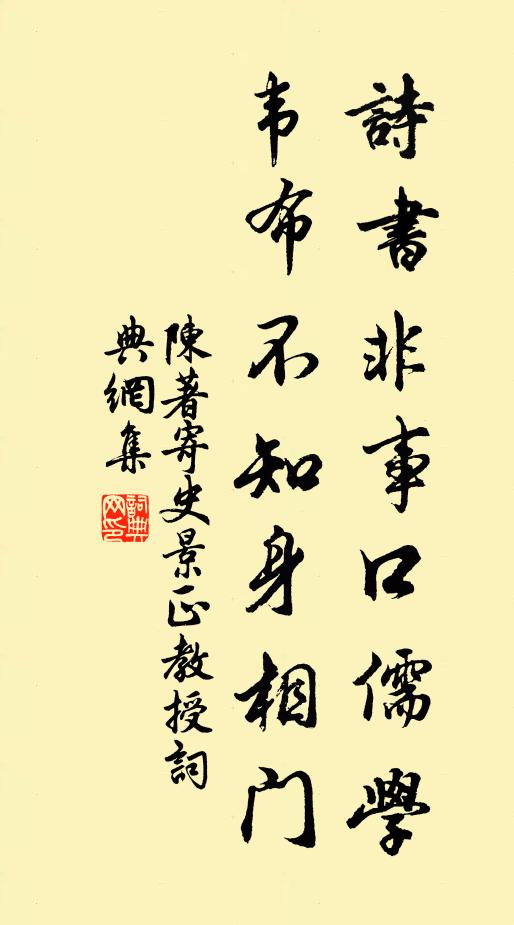 詩書非事口儒學
韦布不知身相门
陳著寄史景正教授詞
典網集
詞典网印